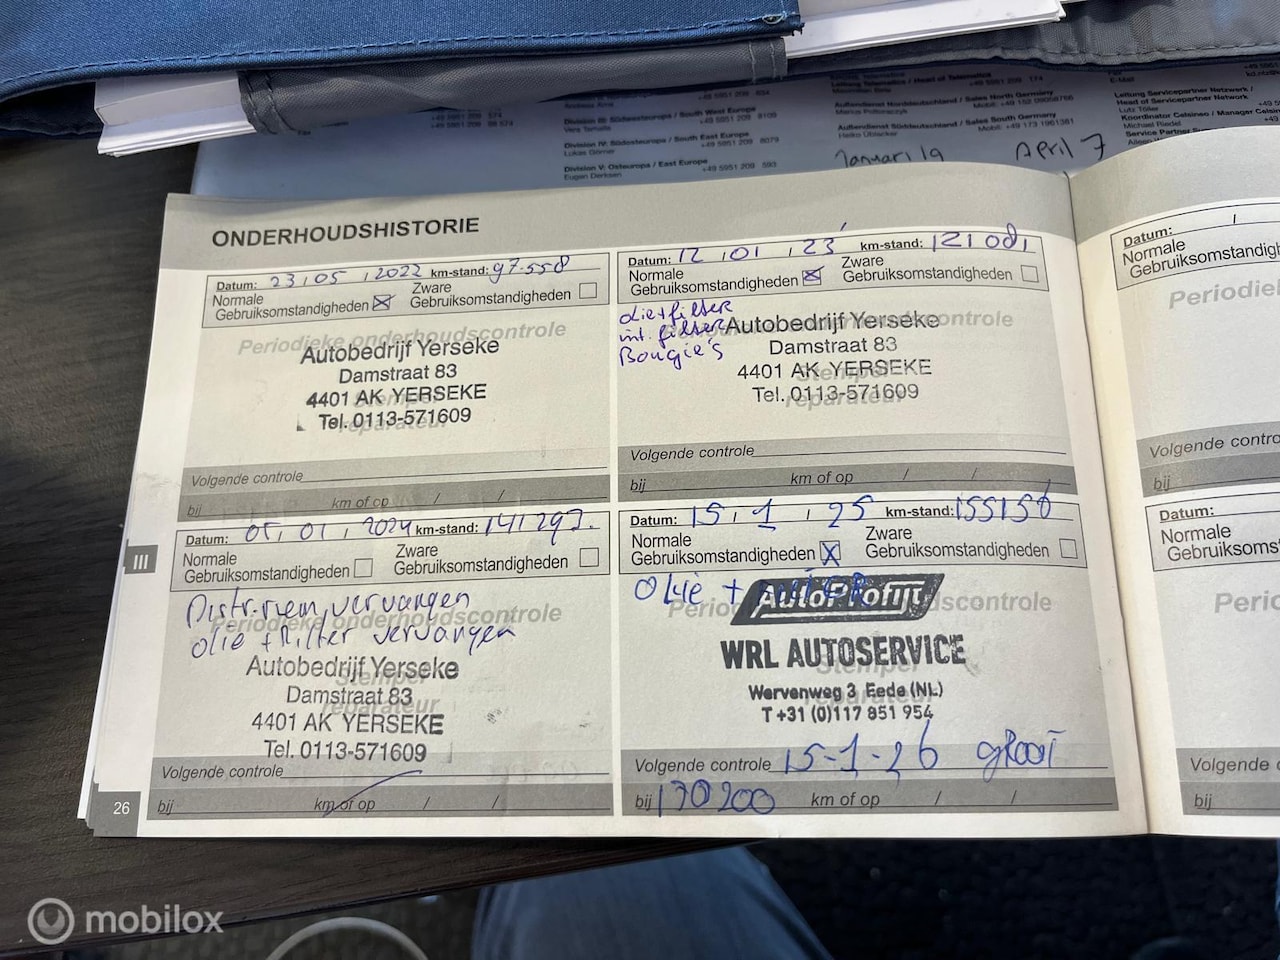 Division III: Südosteuropa / South West Europe
Division IV: Südosteuropa / South East Europe
Lukas Görner +49 5951 209 8079
Division V: Osteuropa / East Europe +49 5951 209 593
Eugen Derksen
Außendienst Norddeutschland / Sales North Germany
Außendienst Süddeutschland / Sales South Germany
Mobil: +49 173 1961381
Leitung Servicepartner Netzwerk /
Head of Servicepartner Network
Lutz Töller
Michael Riedel
Januari 19 April 7
ONDERHOUDSHISTORIE
Datum: 23 / 05 / 2022 km-stand: 97.558
Normale
Gebruiksomstandigheden
Zware
Gebruiksomstandigheden
Periodieke onderhoudscontrole
Autobedrijf Yerseke
Damstraat 83
4401 AK YERSEKE
Tel. 0113-571609
Volgende controle
bij km of op / /
Datum: 12 / 01 / 23 km-stand: 121081
Normale
Gebruiksomstandigheden
Zware
Gebruiksomstandigheden
olie+filter
int. filter
Bougie's
Autobedrijf Yerseke
Damstraat 83
4401 AK YERSEKE
Tel. 0113-571609
Stempel
reparateur
Volgende controle
bij km of op / /
Datum: 05 / 01 / 2024 km-stand: 141297.
Normale
Gebruiksomstandigheden
Zware
Gebruiksomstandigheden
Distr.riem vervangen
olie + filter vervangen
Periodieke onderhoudscontrole
Autobedrijf Yerseke
Damstraat 83
4401 AK YERSEKE
Tel. 0113-571609
Stempel
reparateur
Volgende controle
bij km of op / /
Datum: 15 / 1 / 25 km-stand: 155156
Normale
Gebruiksomstandigheden
Zware
Gebruiksomstandigheden
Olie +
AutoProfijt
WRL AUTOSERVICE
Wervenweg 3 Eede (NL)
T +31 (0)117 851 954
Stempel
reparateur
Volgende controle 15-1-26 groot
bij 170200 km of op / /
III
26
Datum: /
Normale
Gebruiksomstandigh
Periodiek
Volgende contro
bij
Datum:
Normale
Gebruiksomst
Perio
Volgende c
bij
mobilox